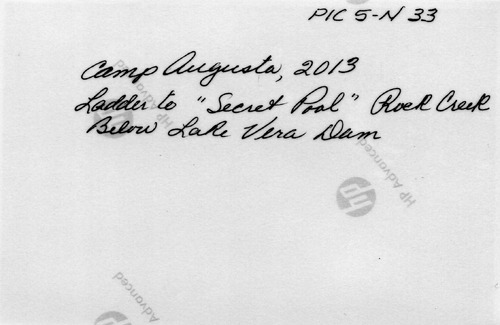 PIC 5-N 33
Camp Augusta, 2013
Ladder to "Secret Pool" Rock Creek
Below Lake Vera Dam
HP Advanced
hp
HP Advanced
hp
HP Advanced
hp